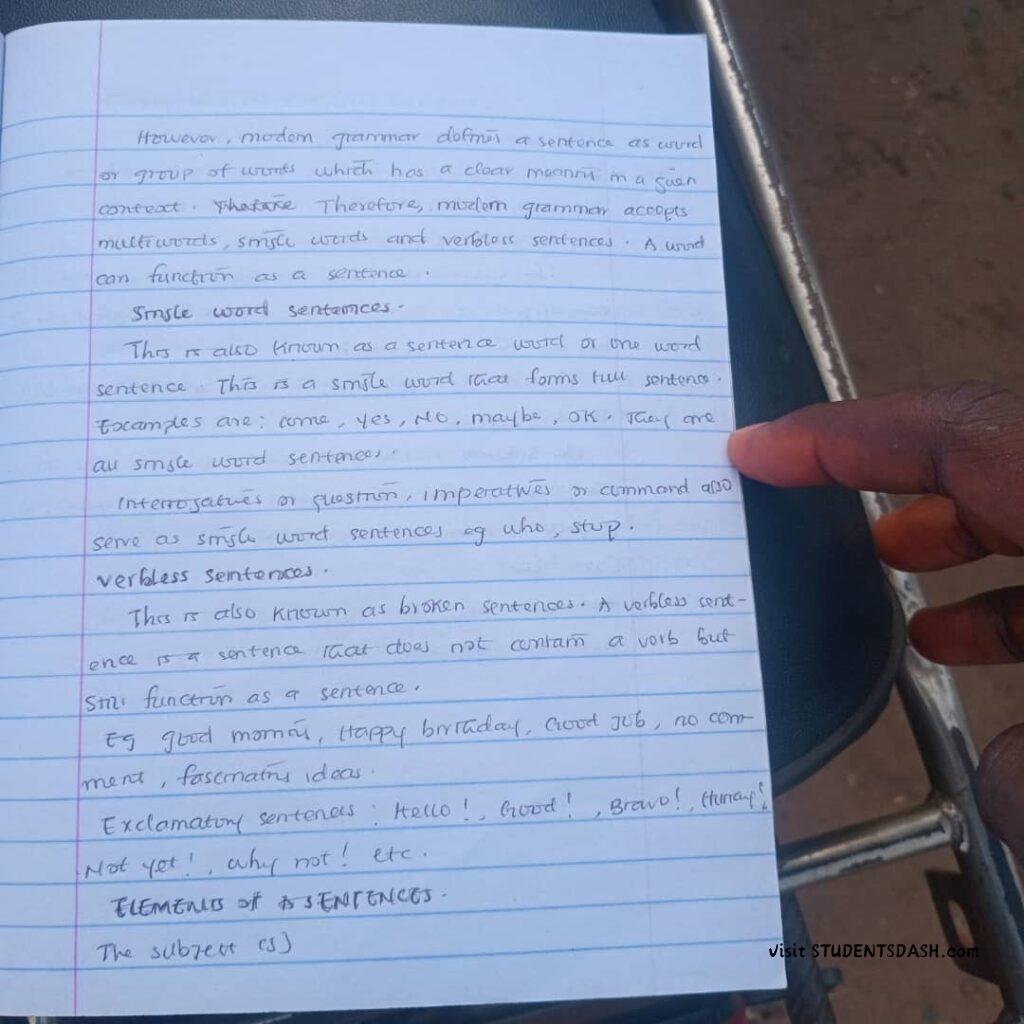 However, modern grammar defines a sentence as word
or group of words which has a clear meaning in a given
context. Therefore, modern grammar accepts
multiwords, single words and verbless sentences. A word
can function as a sentence.
Single word sentences.
This is also known as a sentence word or one word
sentence. This is a single word that forms full sentence.
Examples are: come, yes, No, maybe, OK. They are
all single word sentences.
Interrogatives or question, imperatives or command also
serve as single word sentences eg who, stop.
verbless sentences.
This is also known as broken sentences. A verbless sent-
ence is a sentence that does not contain a verb but
still function as a sentence.
Eg good morning, Happy birthday, Good job, no com-
ment, fascinating ideas.
Exclamatory sentences: Hello!, Good!, Bravo!, Hurray!,
Not yet!, why not! etc.
ELEMENTS OF A SENTENCES.
The subject (s)
visit STUDENTSDASH.com